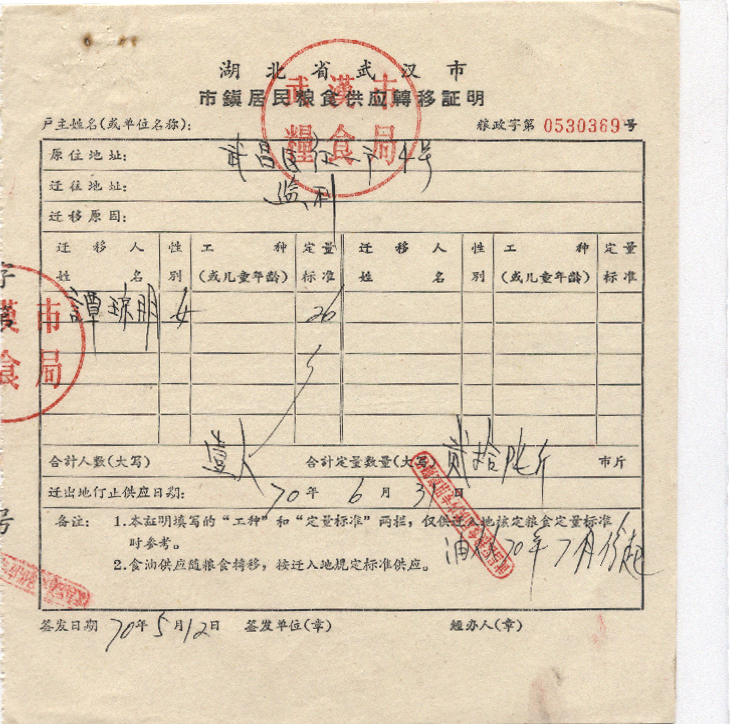 湖北省武汉市
市鎮居民粮食供应轉移証明
戶主姓名(或单位名称):
粮政字第 0530369 号
原住地址: 武昌 4号
迁往地址: 监利
迁移原因:
迁移人姓名 性别 工种(或儿童年龄) 定量标准 迁移人姓名 性别 工种(或儿童年龄) 定量标准
譚琼朋 女 26
合計人数(大写) 壹人 合計定量数量(大写) 贰拾陆斤 市斤
迁出地仃止供应日期: 70年6月31日
备注: 1.本証明填写的“工种”和“定量标准”两栏,仅供迁入地核定粮食定量标准
时参考。
油 70年7月份起
2.食油供应随粮食轉移,按迁入地规定标准供应。
签发日期 70年5月12日 签发单位(章) 經办人(章)
武漢市
糧食局
漢市
食局
号